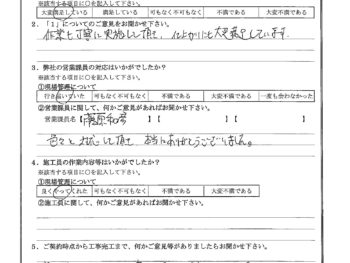 ※該当する項目に○を記入して下さい。
大変満足している 満足している 可もなく不可もなく 不満である 大変不満である
2．「1」についてのご意見をお聞かせ下さい。
作業も丁寧に実施して頂き、仕上がりにも大変満足しています。
3．弊社の営業課員の対応はいかがでしたか？
※該当する項目に○を記入して下さい。
①現場管理について
行き届いていた 可もなく不可もなく 不満である 大変不満である 一度も会わなかった
②営業課員に関して、何かご意見があればお聞かせ下さい。
営業課員名【 】【 】【 】
色々と対応して頂き 本当にありがとうございました。
4．施工員の作業内容等はいかがでしたか？
※該当する項目に○を記入して下さい。
①現場管理について
良くやってくれた 可もなく不可もなく 不満である 大変不満である
②施工員に関して、何かご意見があればお聞かせ下さい。
5．ご契約時点から工事完工まで、何かご意見等がありましたらお聞かせ下さい。